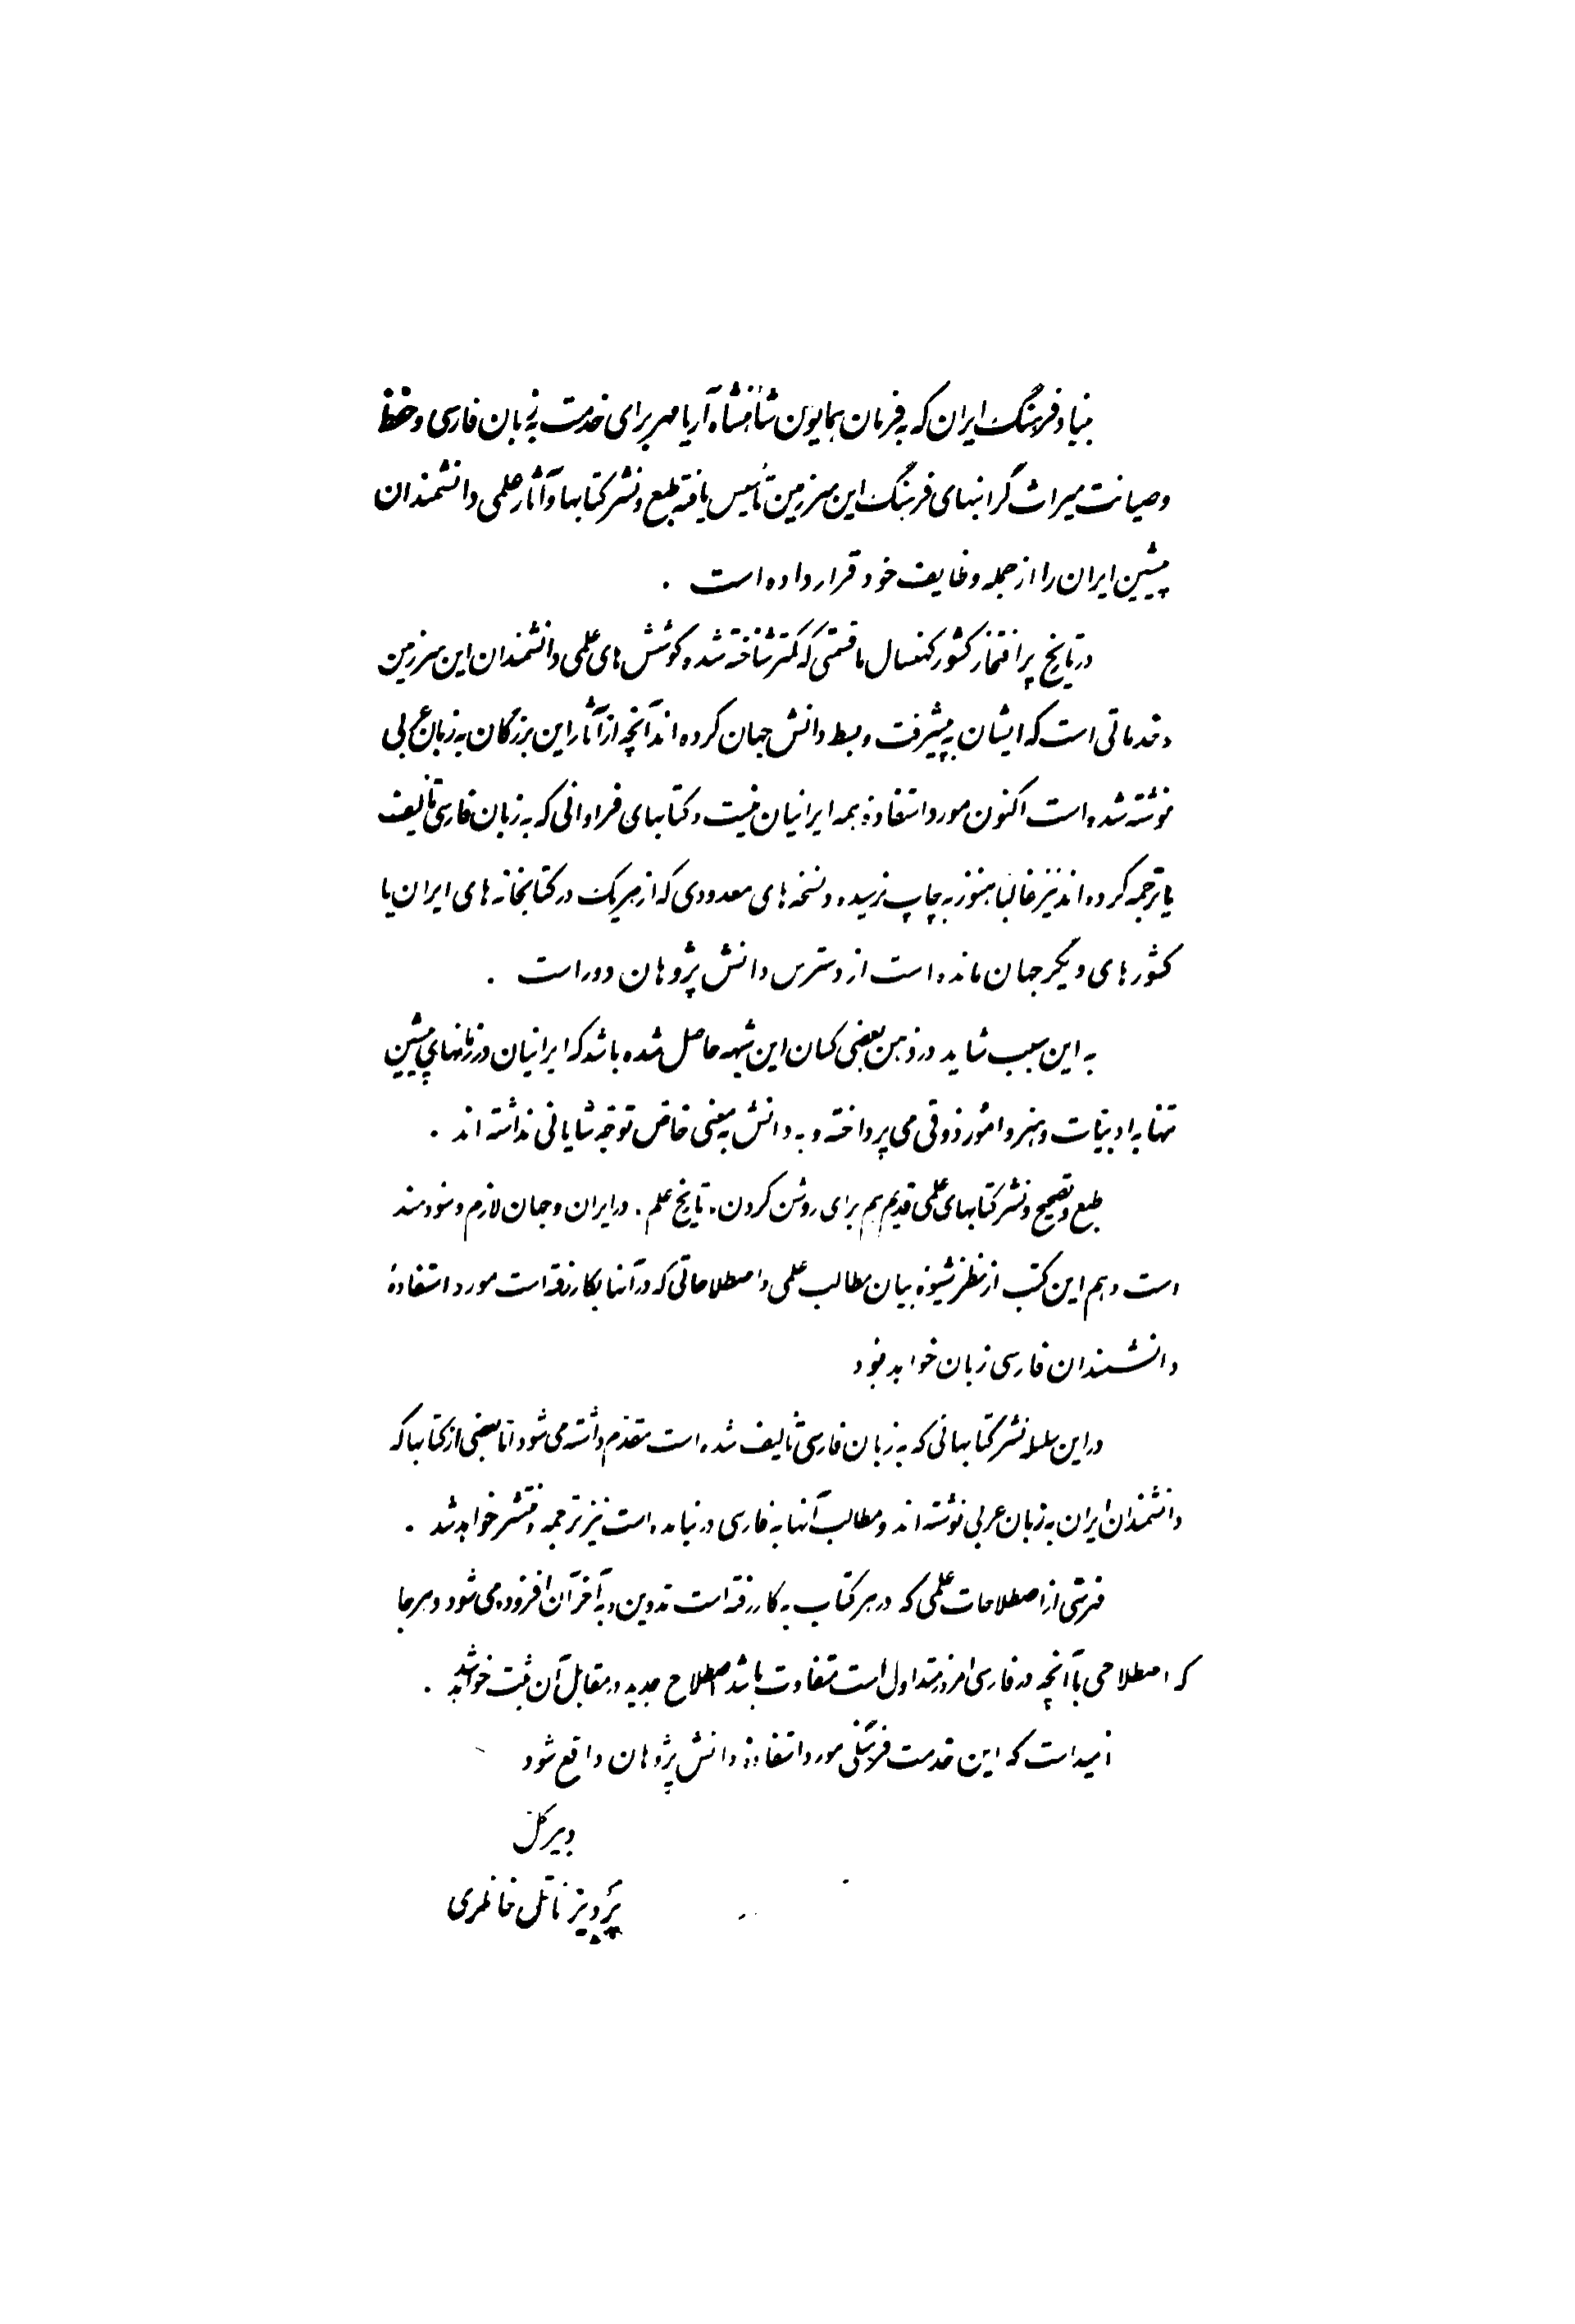 بنیاد فرهنگ ایران که بفرمان همایون شاهنشاه آریامهر برای خدمت به زبان فارسی و حفظ
و صیانت میراث گرانبهای فرهنگ این سرزمین تأسیس یافته طبع و نشر کتابها و آثار علمی دانشمندان
پیشین ایران را از جمله وظایف خود قرار داده است .
در تاریخ پر افتخار کشور کهنسال ما قسمتی که کمتر شناخته شده کوشش های علمی دانشمندان این سرزمین
و خدماتی است که ایشان به پیشرفت و بسط دانش جهان کرده اند آنچه از آثار این بزرگان به زبان عربی
نوشته شده است اکنون مورد استفاده همه ایرانیان نیست و کتابهای فراوانی که به زبان فارسی تألیف
یا ترجمه کرده اند نیز غالبا هنوز به چاپ نرسیده و نسخه های معدودی که از هر یک در کتابخانه های ایران یا
کشورهای دیگر جهان مانده است از دسترس دانش پژوهان دور است .
به این سبب شاید در ذهن بعضی کسان این شبهه حاصل شده باشد که ایرانیان در زمانهای پیشین
تنها به ادبیات و هنر و امور ذوقی می پرداخته و به دانش به معنی خاص توجه شایانی نداشته اند .
طبع و تصحیح و نشر کتابهای علمی قدیم هم برای روشن کردن، تاریخ علم . در ایران و جهان لازم و سودمند
است و هم این کتب از نظر شیوه بیان مطالب علمی و اصطلاحاتی که در آنها بکار رفته است مورد استفادهٔ
دانشمندان فارسی زبان خواهد بود
در این سلسله نشر کتابهائی که به زبان فارسی تألیف شده است مقدم داشته می شود اما بعضی از کتابها که
دانشمندان ایران به زبان عربی نوشته اند و مطالب آنها به فارسی در نیامده است نیز ترجمه و منتشر خواهد شد .
فهرستی از اصطلاحات علمی که در هر کتاب به کار رفته است تدوین و به آخر آن افزوده می شود و هر جا
که اصطلاحی با آنچه در فارسی امروز متداول است متفاوت باشد اصطلاح جدید در مقابل آن ثبت خواهد شد .
امید است که این خدمت فرهنگی مورد استفاده دانش پژوهان واقع شود
دبیر کل
پرویز ناتل خانلری